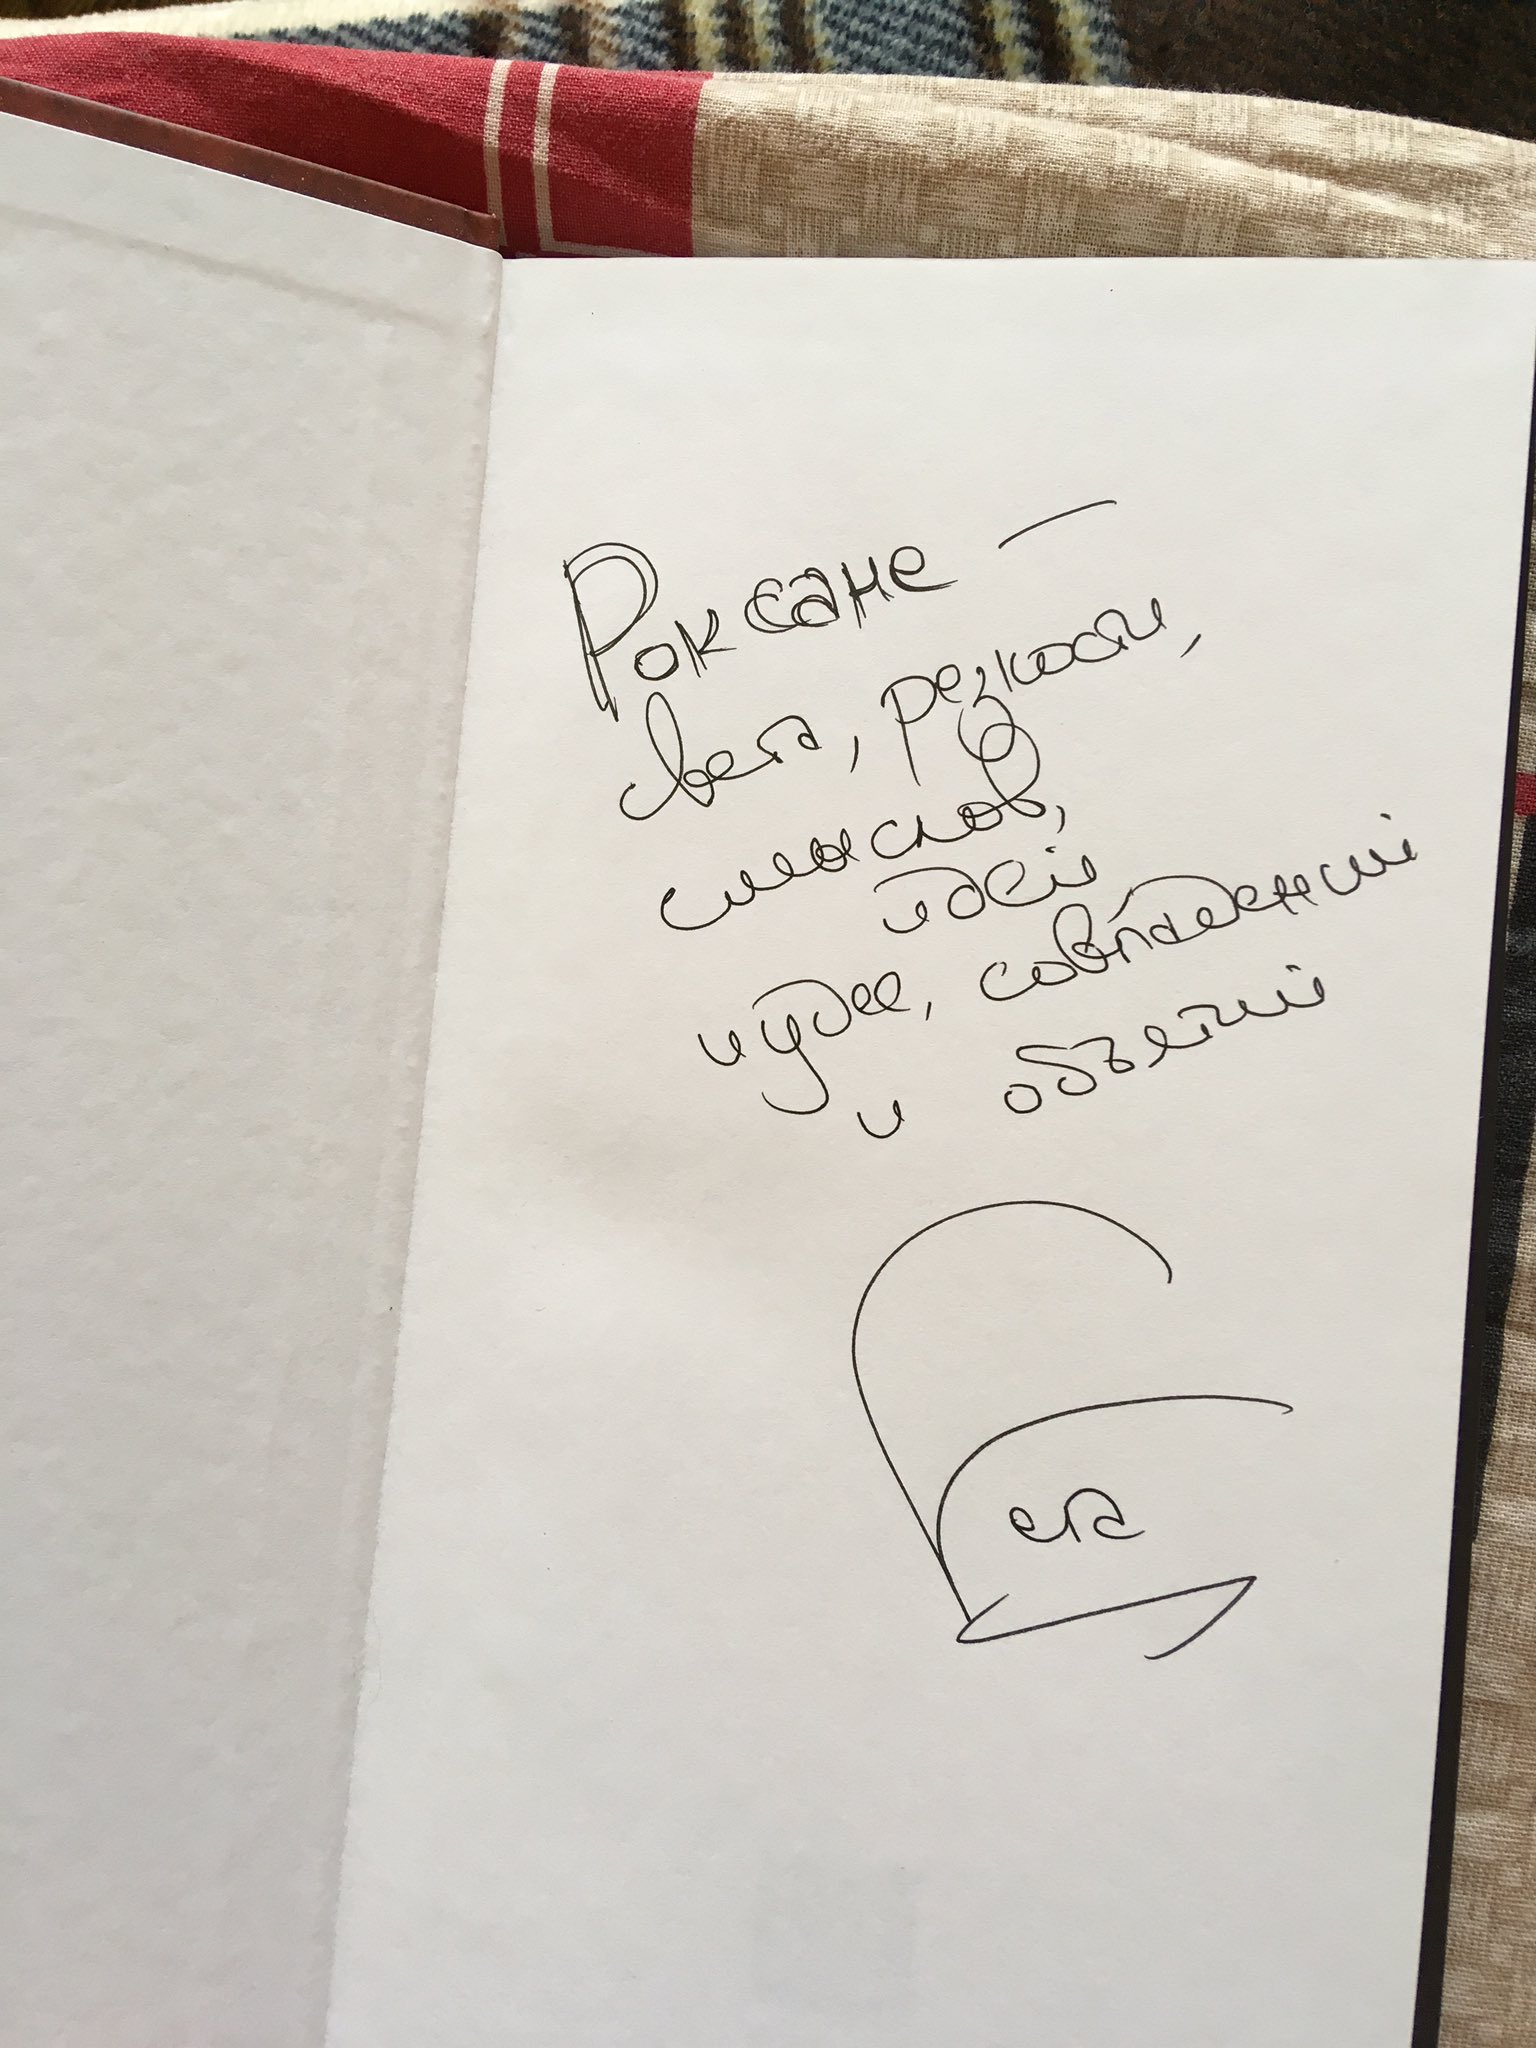 Роксане —
света, резкости,
смыслов,
идей
чудес, совпадений
и объятий